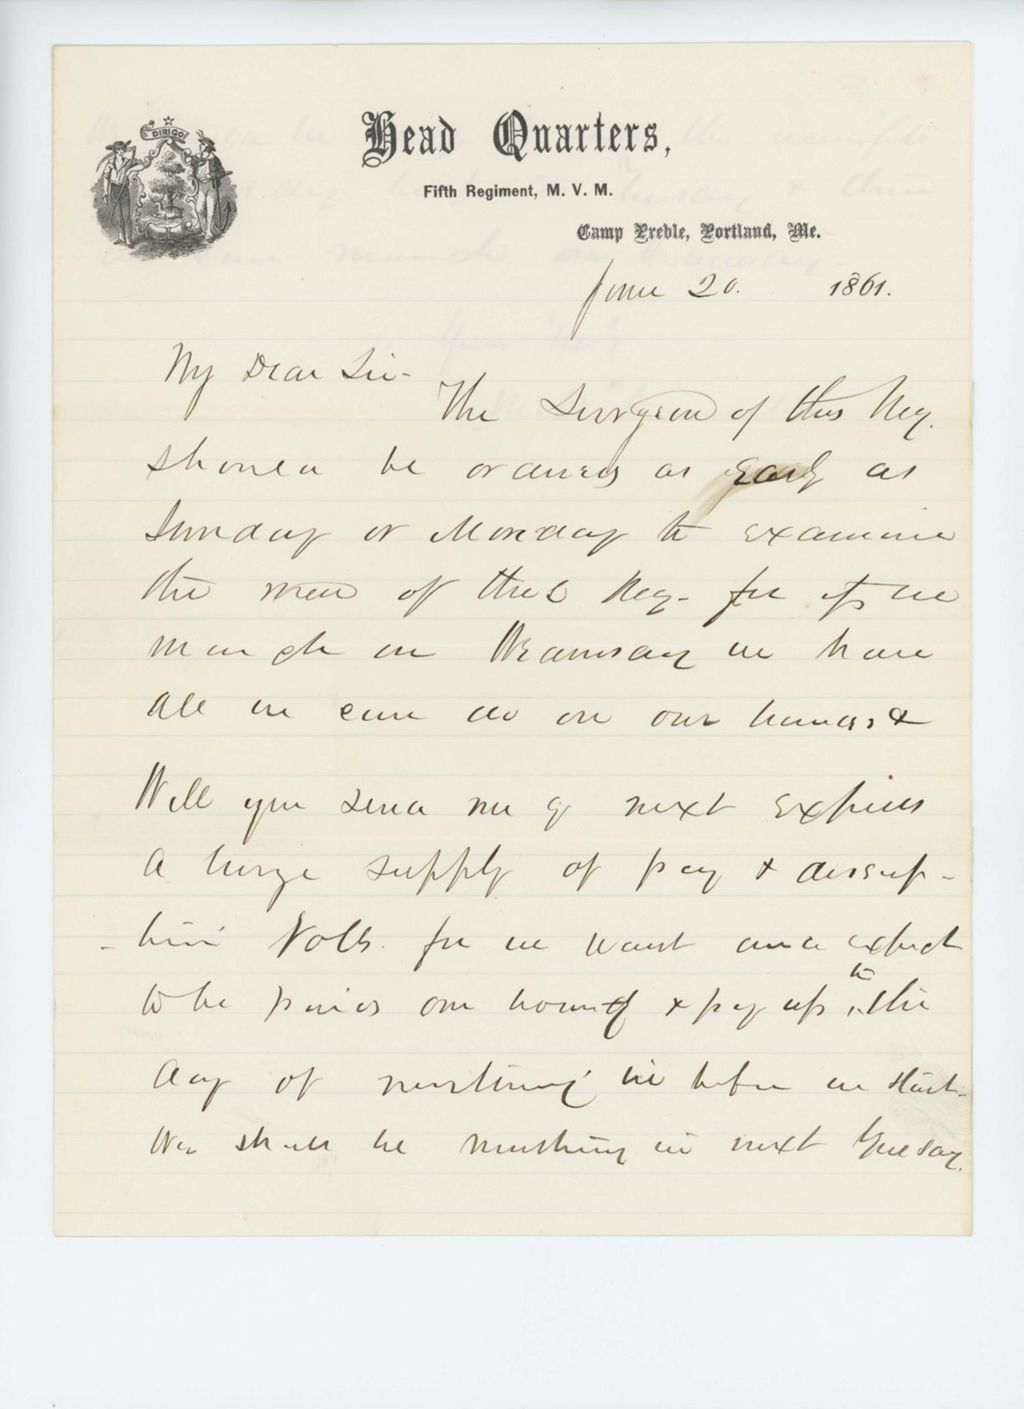 DIRIGO
Head Quarters,
Fifth Regiment, M. V. M.
Camp Preble, Portland, Me.
June 20. 1861.
My Dear Sir-
The Surgeon of this Reg.
should be ordered as early as
Sunday or Monday to examine
the men of this Reg- for if we
march on Wednesday we have
all we can do on our hands &
Will you send me by next Express
a large supply of pay & descrip-
-tive Rolls. for we want and expect
to be paid our bounty & pay up to the
day of mustering in before we start.
We shall be mustering in next Tuesday.